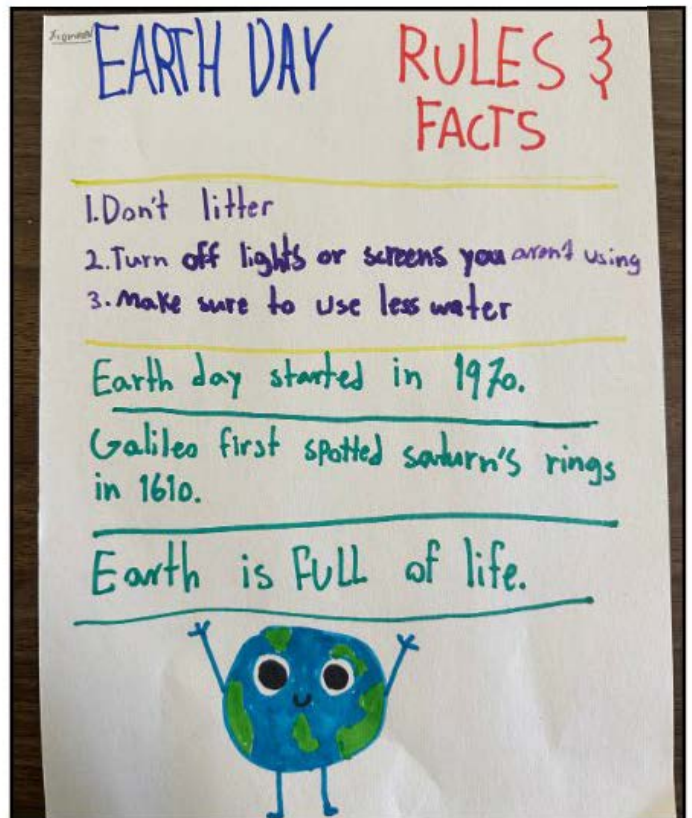 EARTH DAY RULES &
FACTS
1. Don't litter
2. Turn off lights or screens you aren't using
3. Make sure to use less water
Earth day started in 1970.
Galileo first spotted saturn's rings
in 1610.
Earth is FULL of life.